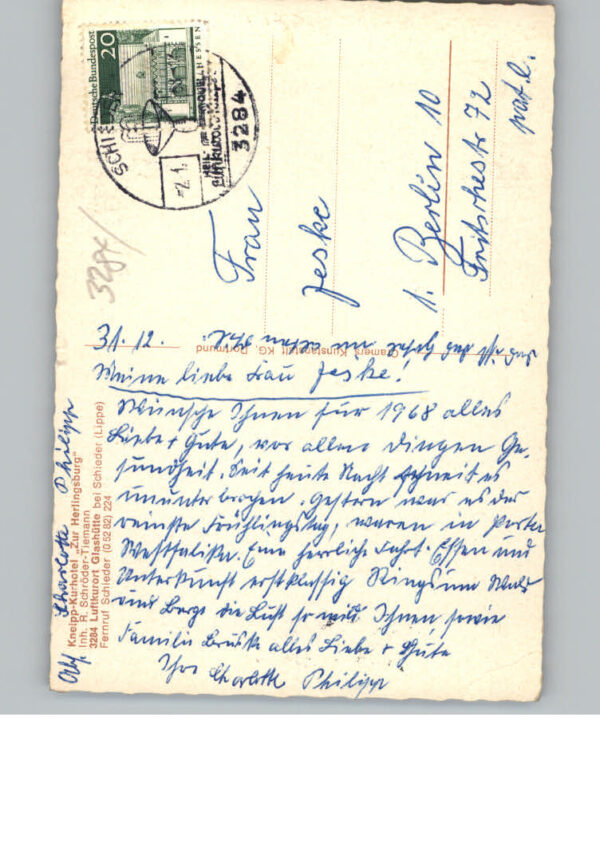 Deutsche Bundespost
20
HESSEN
SCHIEDER
3284
-2.1.
3284/
Frau
Jeske
1. Berlin 10
Fritschestr 72
Cramers Kunstanstalt KG, Dortmund
31.12.
Meine liebe Frau Jeske!
Wünsche Ihnen für 1968 alles
Liebe + Gute, vor allen Dingen Ge-
sundheit. Seit heute Nacht schneit es
ununterbrochen. Gestern war es der
reinste Frühlingstag, waren in Porta
Westfalika. Eine herrliche Fahrt. Essen und
Unterkunft erstklassig Ringsum Wald
und Berge die Luft so mild. Ihnen sowie
Familie alles Liebe + Gute
Ihre Charlotte Philipp
Abs. Charlotte Philipp
Kneipp-Kurhotel „Zur Herlingsburg"
Inh. R. Schröder-Tiemann
3284 Luftkurort Glashütte bei Schieder (Lippe)
Fernruf Schieder (0 52 82) 224